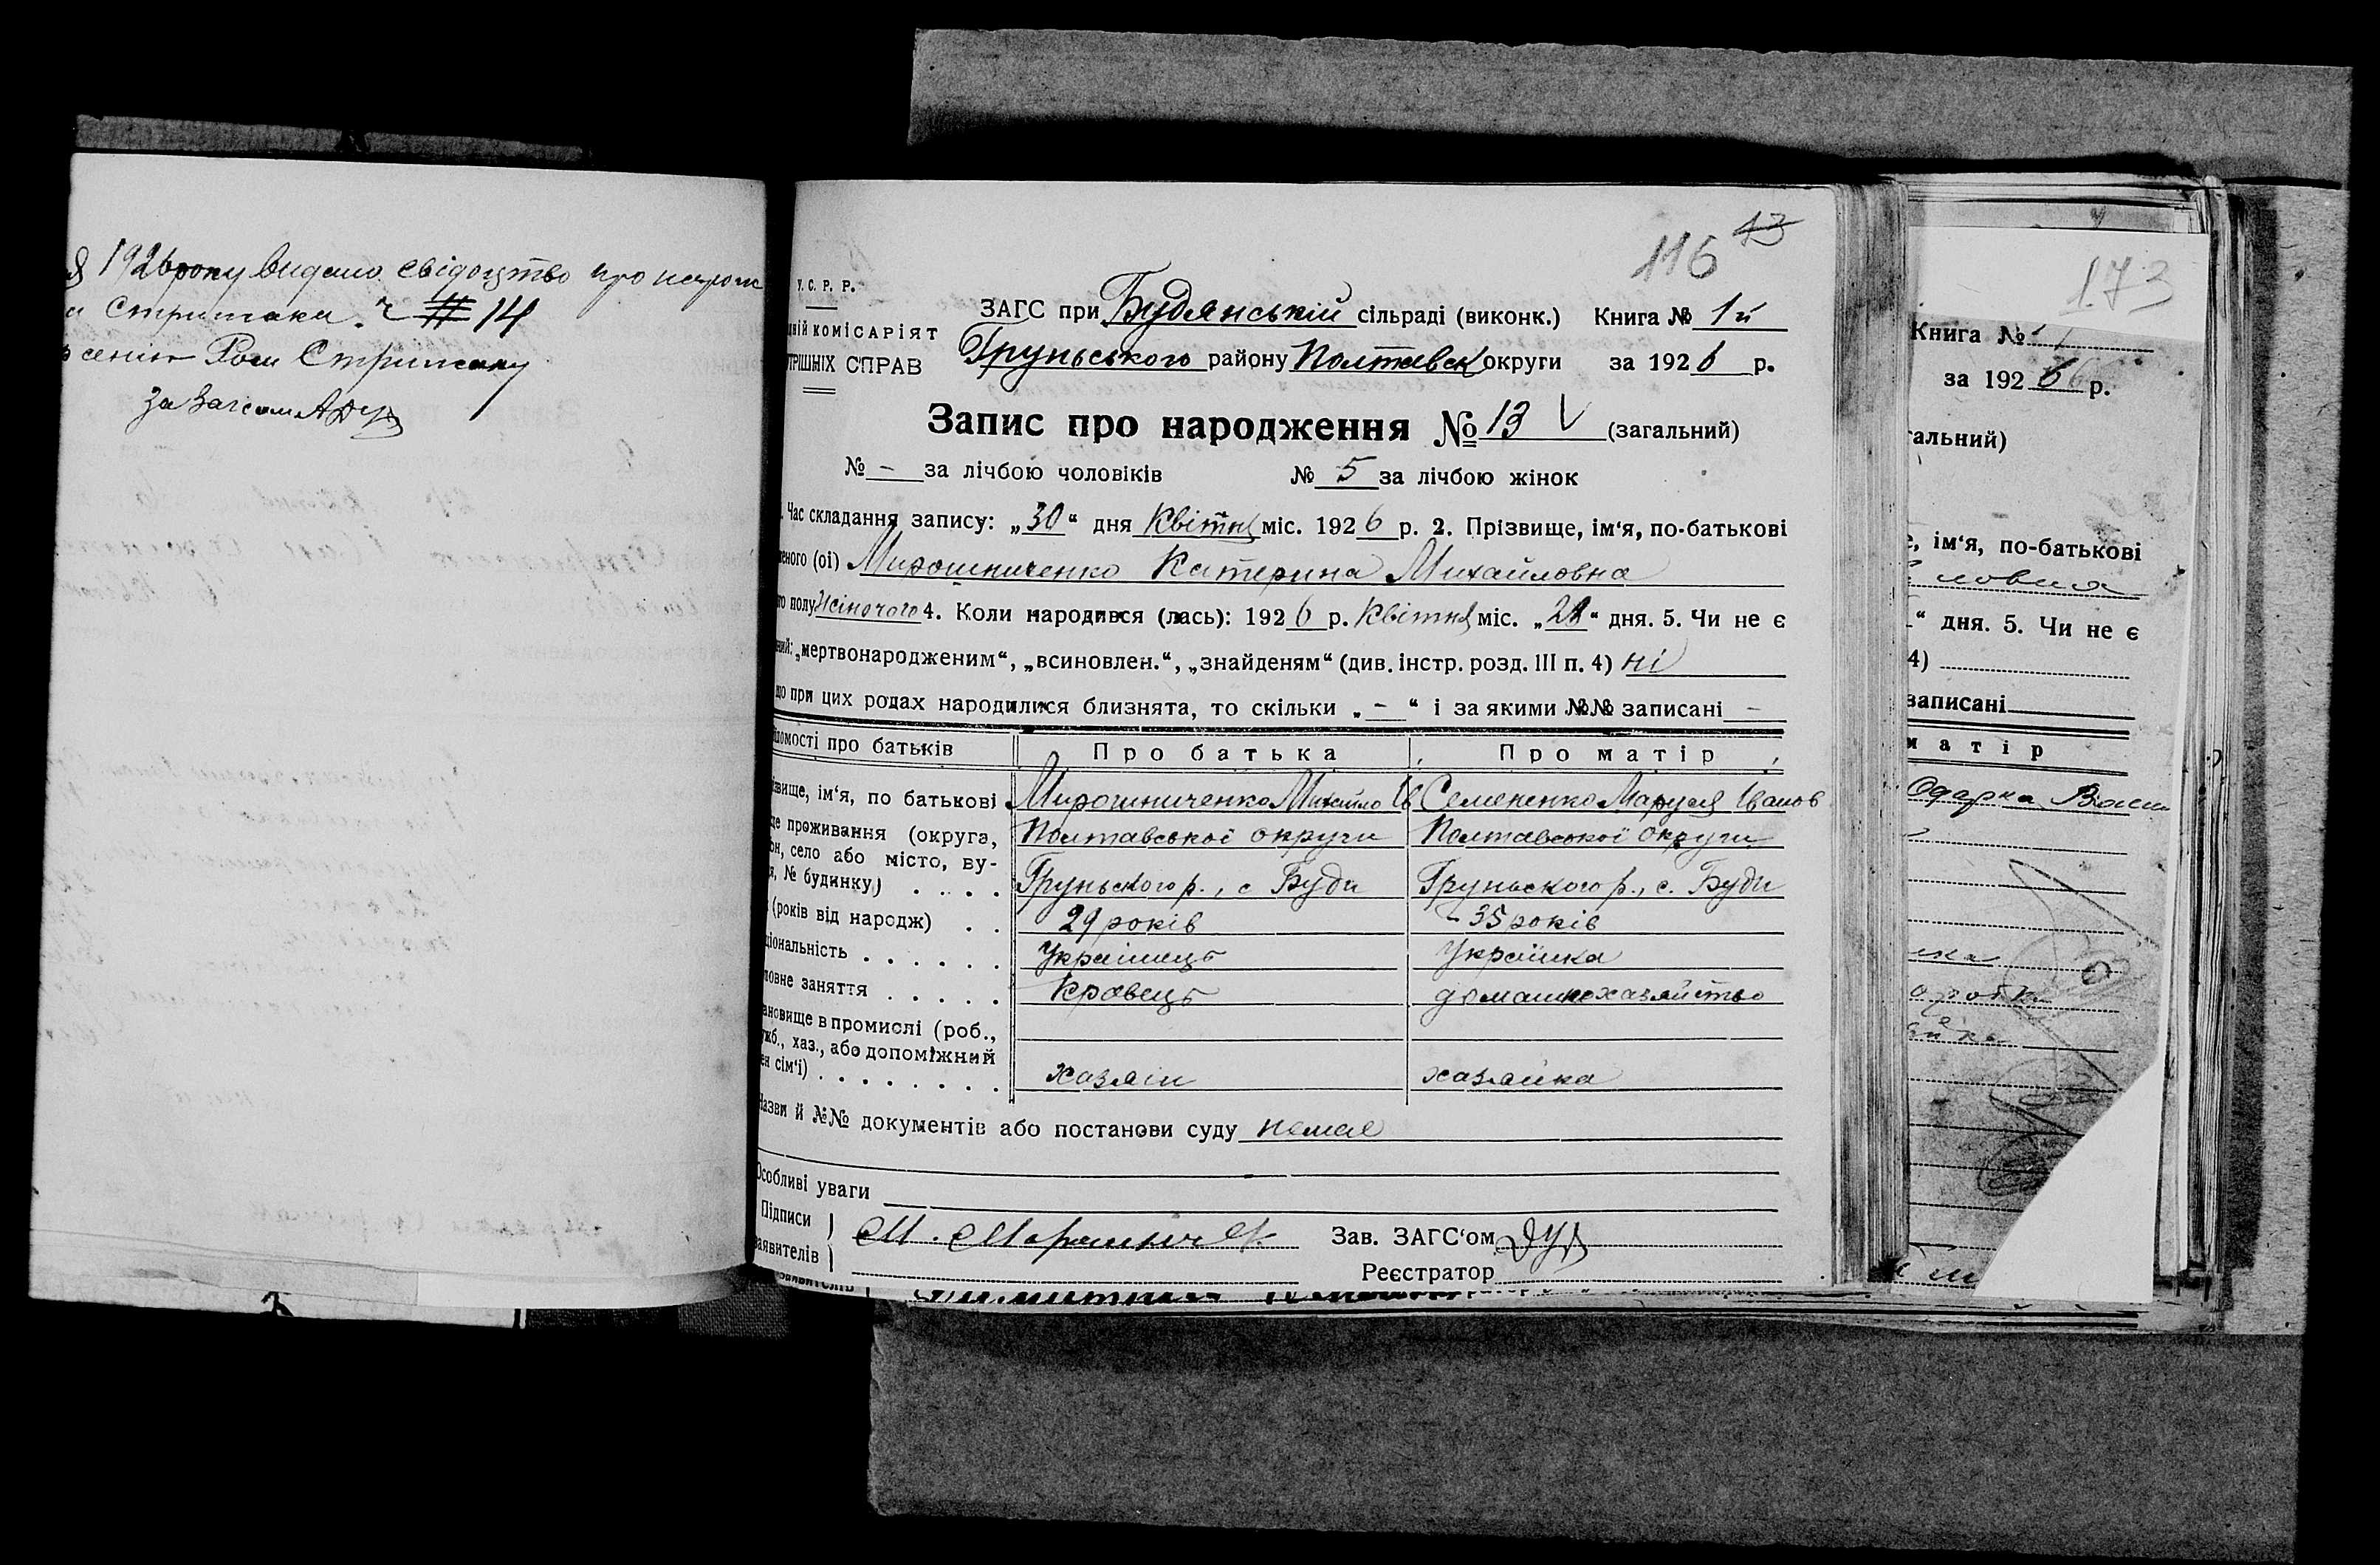 1926 року видано свідоцтво про народж
Стрижака. 14
Рош Стрижаку
За Загсом
116 13
У. С. Р. Р.
ЗАГС при Будянській сільраді (виконк.) Книга № 1й
КОМІСАРІЯТ
Груньського району Полтавськ округи за 1926 р.
СПРАВ
Запис про народження № 13 V (загальний)
№ - за лічбою чоловіків № 5 за лічбою жінок
Час складання запису: „30“ дня Квітня міс. 1926 р. 2. Прізвище, ім'я, по-батькові
(ої) Мирошниченко Катерина Михайловна
полу Жіночого 4. Коли народився (лась): 1926 р. Квітня міс. „28“ дня. 5. Чи не є
„мертвонародженим“, „всиновлен.“, „знайденям“ (див. інстр. розд. III п. 4) ні
що при цих родах народилися близнята, то скільки „-“ і за якими №№ записані -
домості про батьків Про батька Про матір
звище, ім'я, по батькові Мирошниченко Михайло Ів Семененко Маруся Іванов
це проживання (округа, Полтавської округи Полтавської округи
он, село або місто, ву-
я, № будинку) . . . . Груньского р., с Буди Груньского р., с. Буди
(років від народж) . . 29 років 35 років
ціональність . . . . . . Українець Українка
ловне заняття . . . . . Кравець домашнє хазяйство
ановище в промислі (роб.,
ужб., хаз., або допоміжний
ен сім'ї) . . . . . . . . хазяїн хазяйка
Назви й №№ документів або постанови суду немає
Особливі уваги
Підписи
заявителів
М. Мирошнич Зав. ЗАГС'ом
Реєстратор
173
Книга № 1
за 1926 р.
гальний)
ім'я, по-батькові
ловна
“ дня. 5. Чи не є
4)
записані
матір
Одарка Васи